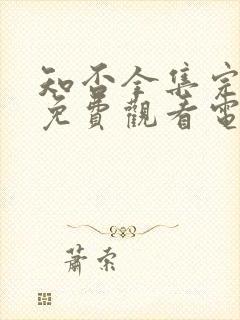 知否全集完
免費觀看電
蕭索